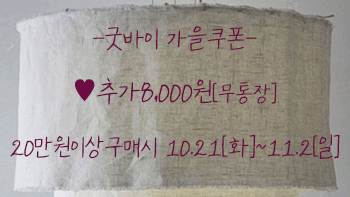 -굿바이 가을쿠폰-
♥추가8,000원[무통장]
20만원이상구매시 10.21[화]~11.2[일]